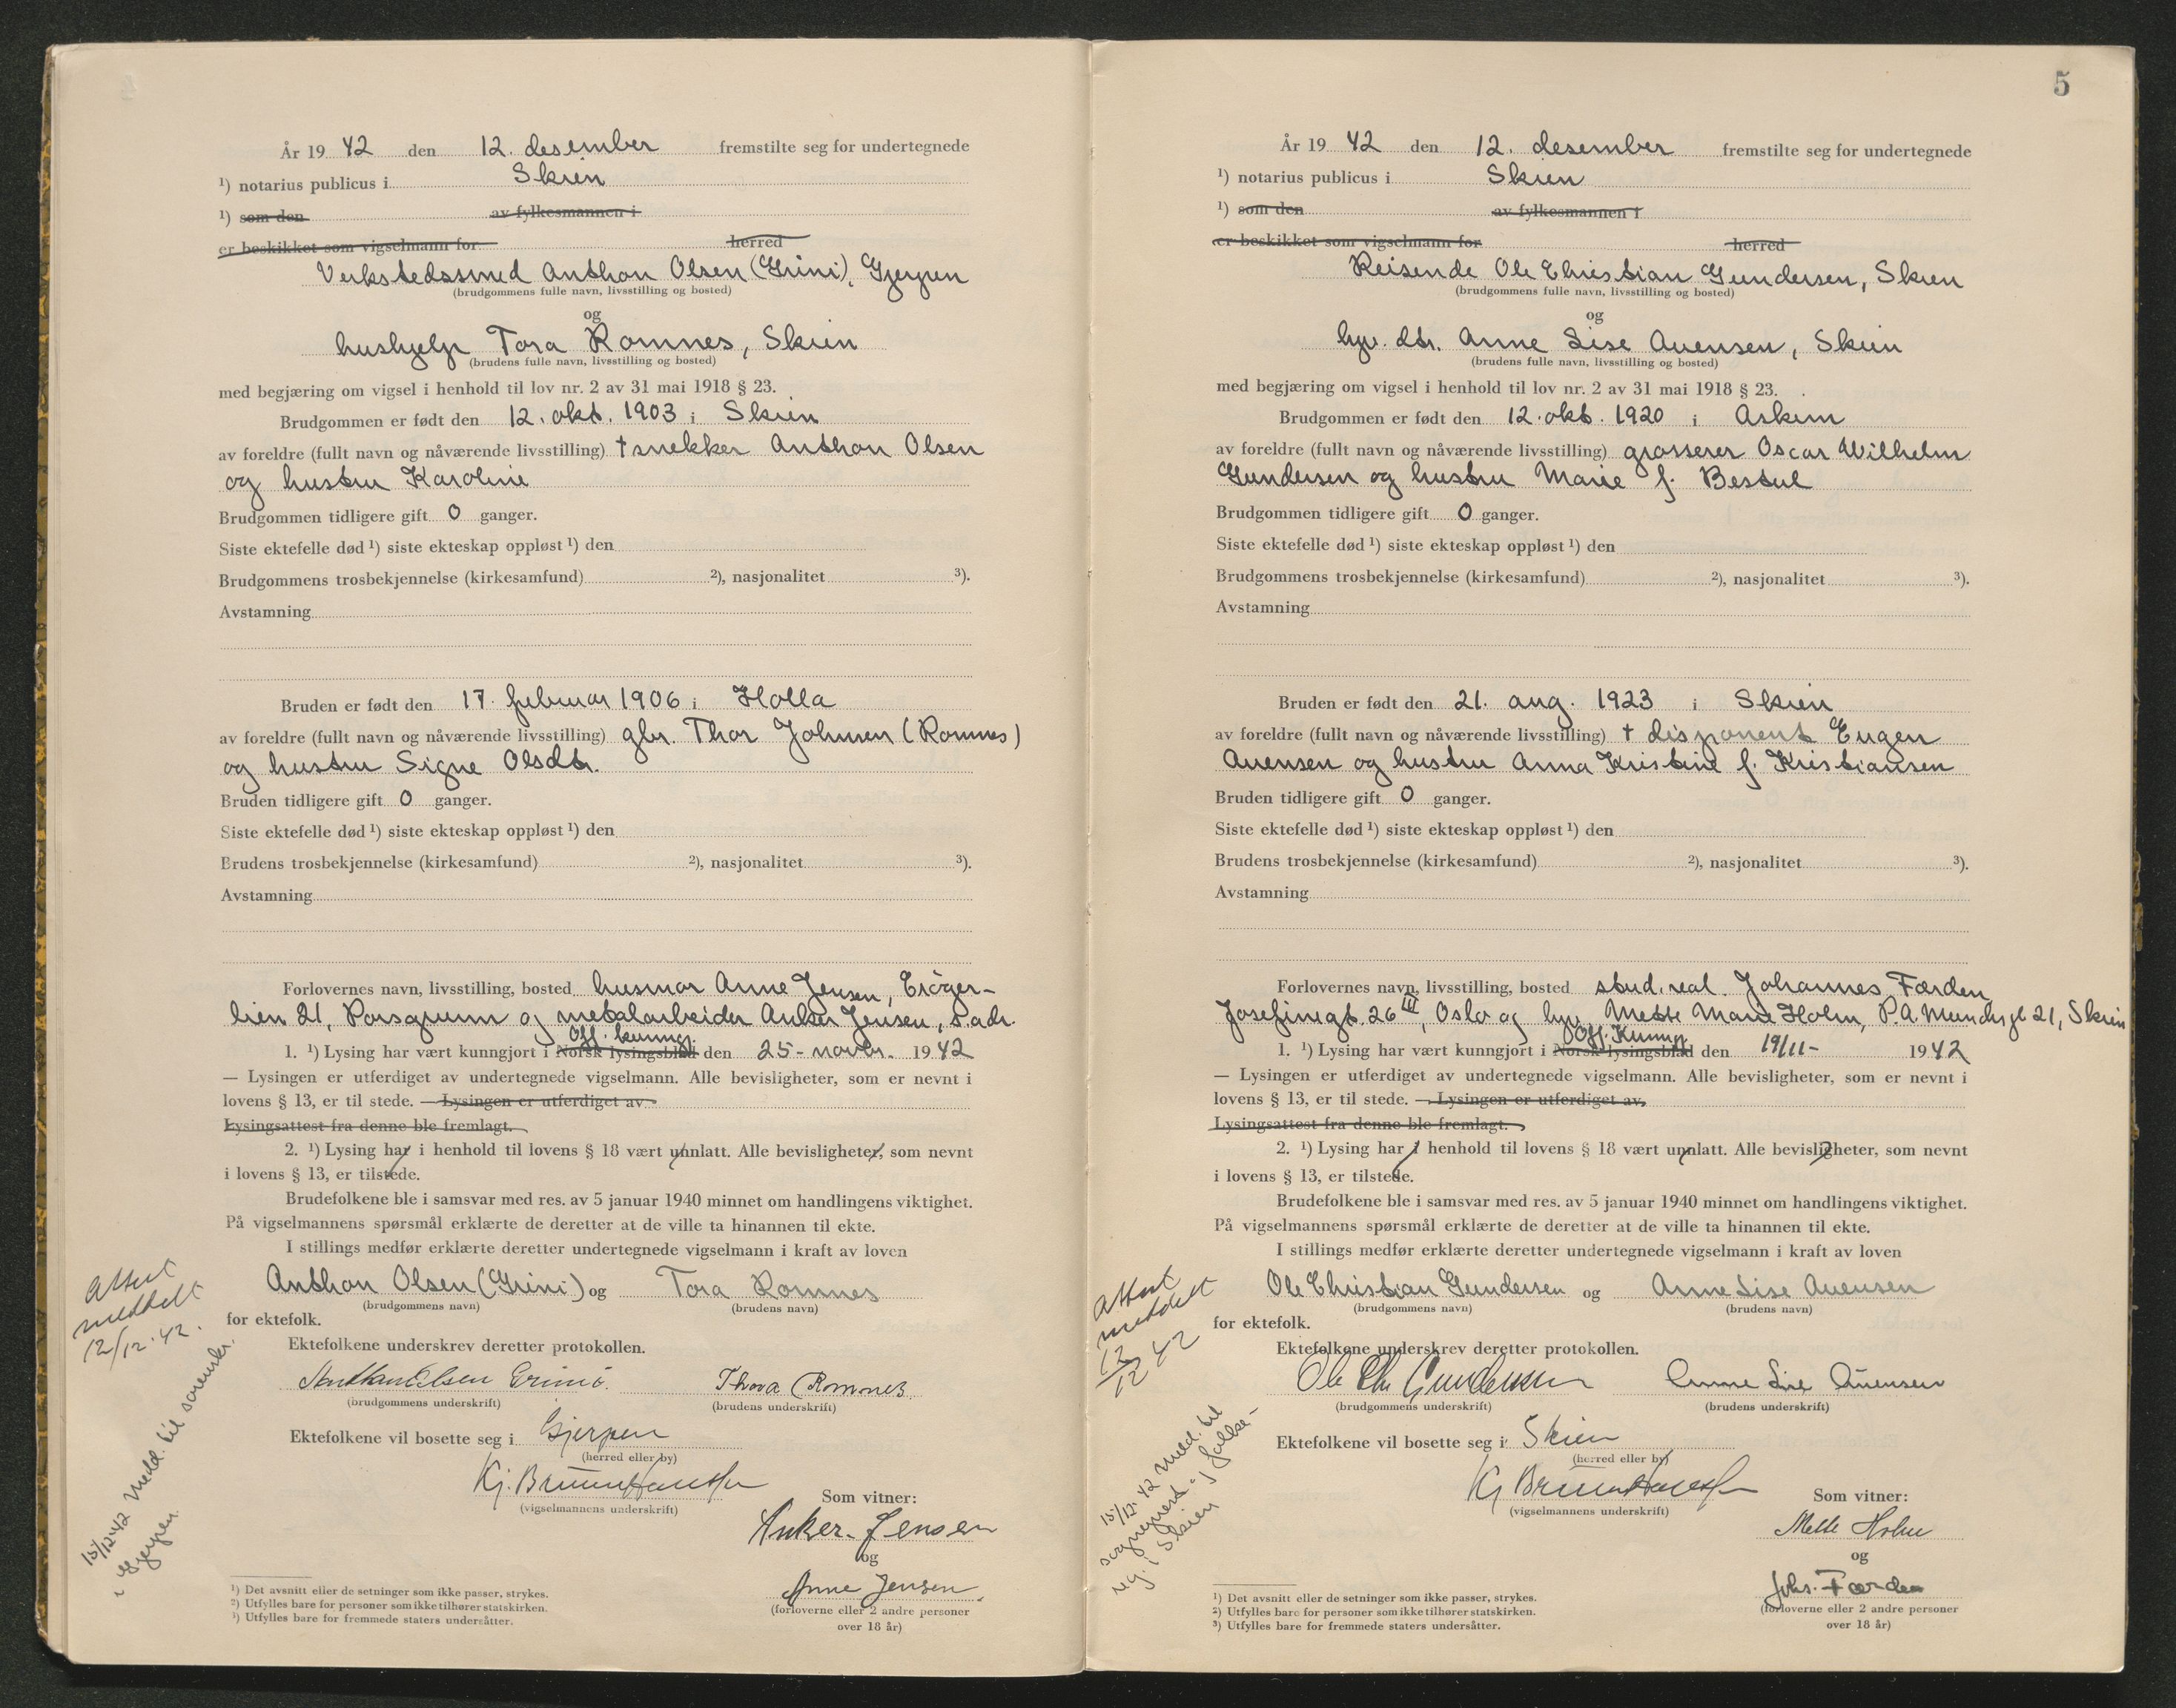 År 19 42 den 12. desember fremstilte seg for undertegnede
¹) notarius publicus i Skien
¹) som den av fylkesmannen i
er beskikket som vigselmann for herred
Verkstedssmed Anthon Olsen (Grini), Gjerpen
(brudgommens fulle navn, livsstilling og bosted)
og
hushjelp Tora Romnes, Skien
(brudens fulle navn, livsstilling og bosted)
med begjæring om vigsel i henhold til lov nr. 2 av 31 mai 1918 § 23.
Brudgommen er født den 12. okt. 1903 i Skien
av foreldre (fullt navn og nåværende livsstilling) † snekker Anthon Olsen
og hustru Karoline
Brudgommen tidligere gift 0 ganger.
Siste ektefelle død ¹) siste ekteskap oppløst ¹) den
Brudgommens trosbekjennelse (kirkesamfund) ²), nasjonalitet ³).
Avstamning
Bruden er født den 17. februar 1906 i Holla
av foreldre (fullt navn og nåværende livsstilling) gbr. Thor Johnsen (Romnes)
og hustru Signe Olsdtr.
Bruden tidligere gift 0 ganger.
Siste ektefelle død ¹) siste ekteskap oppløst ¹) den
Brudens trosbekjennelse (kirkesamfund) ²), nasjonalitet ³).
Avstamning
Forlovernes navn, livsstilling, bosted husmor Anne Jensen,
lien 21, Porsgrunn og metalarbeider Anker Jensen, s. adr.
Off. kunngj.
1. ¹) Lysing har vært kunngjort i Norsk lysingsblad den 25- novbr. 1942
— Lysingen er utferdiget av undertegnede vigselmann. Alle bevisligheter, som er nevnt i
lovens § 13, er til stede. — Lysingen er utferdiget av
Lysingsattest fra denne ble fremlagt.
2. ¹) Lysing har i henhold til lovens § 18 vært unnlatt. Alle bevisligheter, som nevnt
i lovens § 13, er tilstede.
Brudefolkene ble i samsvar med res. av 5 januar 1940 minnet om handlingens viktighet.
På vigselmannens spørsmål erklærte de deretter at de ville ta hinannen til ekte.
I stillings medfør erklærte deretter undertegnede vigselmann i kraft av loven
Anthon Olsen (Grini) og Tora Romnes
(brudgommens navn) (brudens navn)
for ektefolk.
Ektefolkene underskrev deretter protokollen.
Anthon Olsen Grini. Thora Romnes
(brudgommens underskrift) (brudens underskrift)
Ektefolkene vil bosette seg i Gjerpen
(herred eller by)
Kj. Bruun Hanssen
(vigselmannens underskrift)
Som vitner:
Anker Jensen
og
Anne Jensen
(forloverne eller 2 andre personer
over 18 år)
Attest
meddelt
12/12.42.
15/12 42 Meld. til sorenskr.
i Gjerpen
¹) Det avsnitt eller de setninger som ikke passer, strykes.
²) Utfylles bare for personer som ikke tilhører statskirken.
³) Utfylles bare for fremmede staters undersåtter.
5
År 19 42 den 12. desember fremstilte seg for undertegnede
¹) notarius publicus i Skien
¹) som den av fylkesmannen i
er beskikket som vigselmann for herred
Reisende Ole Christian Gundersen, Skien
(brudgommens fulle navn, livsstilling og bosted)
og
hjv. dtr. Anne Lise Auensen, Skien
(brudens fulle navn, livsstilling og bosted)
med begjæring om vigsel i henhold til lov nr. 2 av 31 mai 1918 § 23.
Brudgommen er født den 12. okt. 1920 i Askim
av foreldre (fullt navn og nåværende livsstilling) grosserer Oscar Wilhelm
Gundersen og hustru Marie f. Bestul
Brudgommen tidligere gift 0 ganger.
Siste ektefelle død ¹) siste ekteskap oppløst ¹) den
Brudgommens trosbekjennelse (kirkesamfund) ²), nasjonalitet ³).
Avstamning
Bruden er født den 21. aug. 1923 i Skien
av foreldre (fullt navn og nåværende livsstilling) † disponent Eugen
Auensen og hustru Anna Kristine f. Kristiansen
Bruden tidligere gift 0 ganger.
Siste ektefelle død ¹) siste ekteskap oppløst ¹) den
Brudens trosbekjennelse (kirkesamfund) ²), nasjonalitet ³).
Avstamning
Forlovernes navn, livsstilling, bosted stud. real. Johannes Færden
Josefinegt. 26 III, Oslo og hjv. Mette Marie Holm, P.A. Munchsgt 21, Skien
Off. Kunngj.
1. ¹) Lysing har vært kunngjort i Norsk lysingsblad den 19/11- 1942
— Lysingen er utferdiget av undertegnede vigselmann. Alle bevisligheter, som er nevnt i
lovens § 13, er til stede. — Lysingen er utferdiget av
Lysingsattest fra denne ble fremlagt.
2. ¹) Lysing har i henhold til lovens § 18 vært unnlatt. Alle bevisligheter, som nevnt
i lovens § 13, er tilstede.
Brudefolkene ble i samsvar med res. av 5 januar 1940 minnet om handlingens viktighet.
På vigselmannens spørsmål erklærte de deretter at de ville ta hinannen til ekte.
I stillings medfør erklærte deretter undertegnede vigselmann i kraft av loven
Ole Christian Gundersen og Anne Lise Auensen
(brudgommens navn) (brudens navn)
for ektefolk.
Ektefolkene underskrev deretter protokollen.
Ole Chr Gundersen Anne Lise Auensen
(brudgommens underskrift) (brudens underskrift)
Ektefolkene vil bosette seg i Skien
(herred eller by)
Kj Bruun Hanssen
(vigselmannens underskrift)
Som vitner:
Mette Holm
og
Johs. Færden
(forloverne eller 2 andre personer
over 18 år)
Attest
meddelt
12/12 42
15/12 42 Meld. til
sogneprest i folke-
reg. i Skien
¹) Det avsnitt eller de setninger som ikke passer, strykes.
²) Utfylles bare for personer som ikke tilhører statskirken.
³) Utfylles bare for fremmede staters undersåtter.